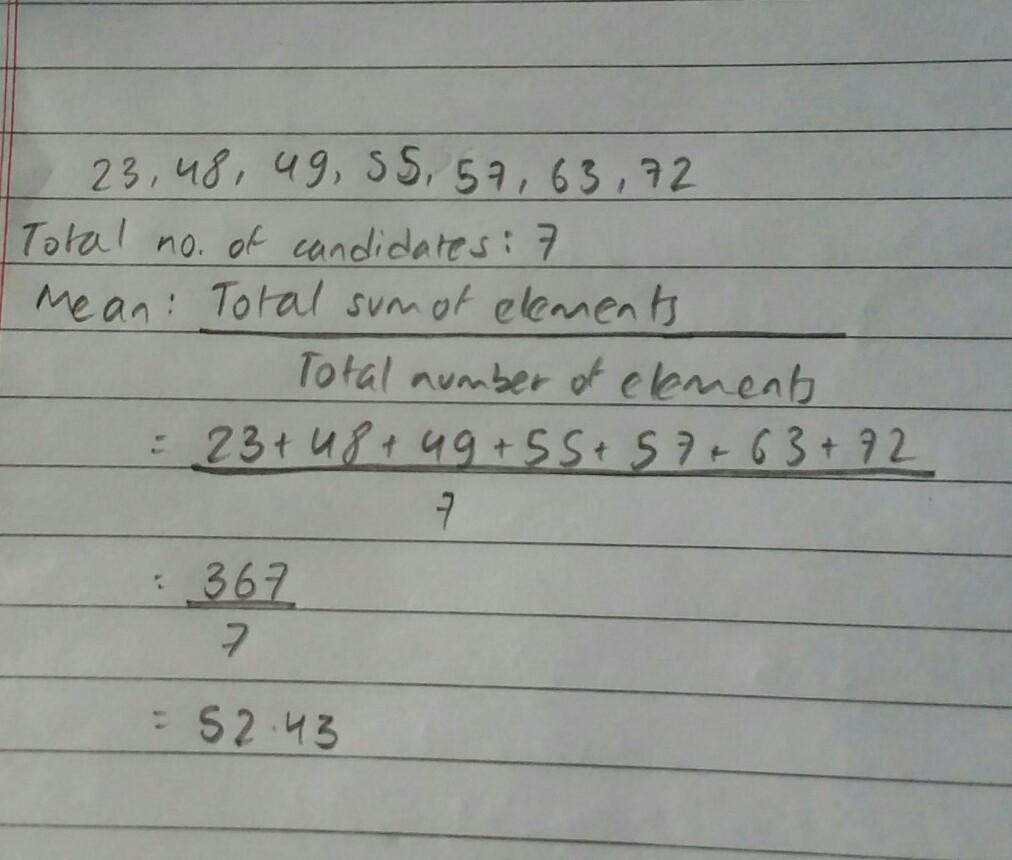 23, 48, 49, 55, 57, 63, 72
Total no. of candidates: 7
Mean: Total sum of elements
Total number of elements
= 23+48+49+55+57+63+72
7
= 367
7
= 52.43